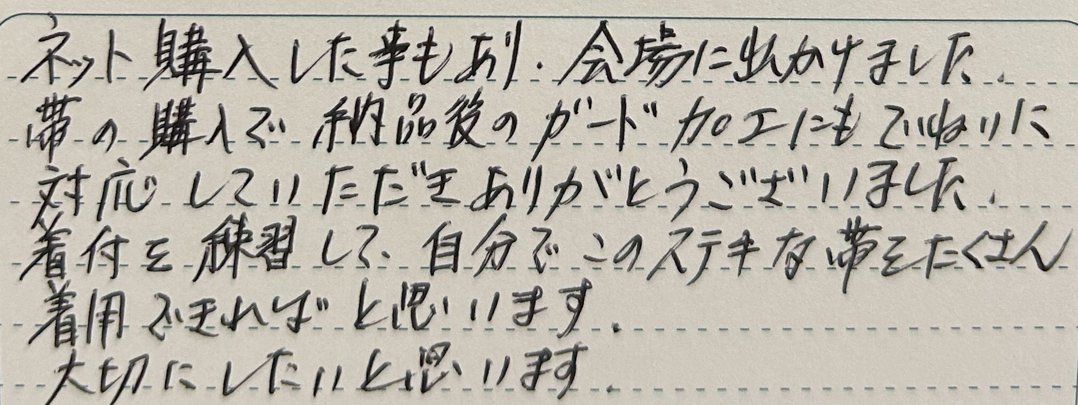 ネット購入した事もあり、会場に出かけました。
帯の購入で、納品後のガード加工にもていねいに
対応していただきありがとうございました。
着付を練習して、自分でこのステキな帯をたくさん
着用できればと思います。
大切にしたいと思います。